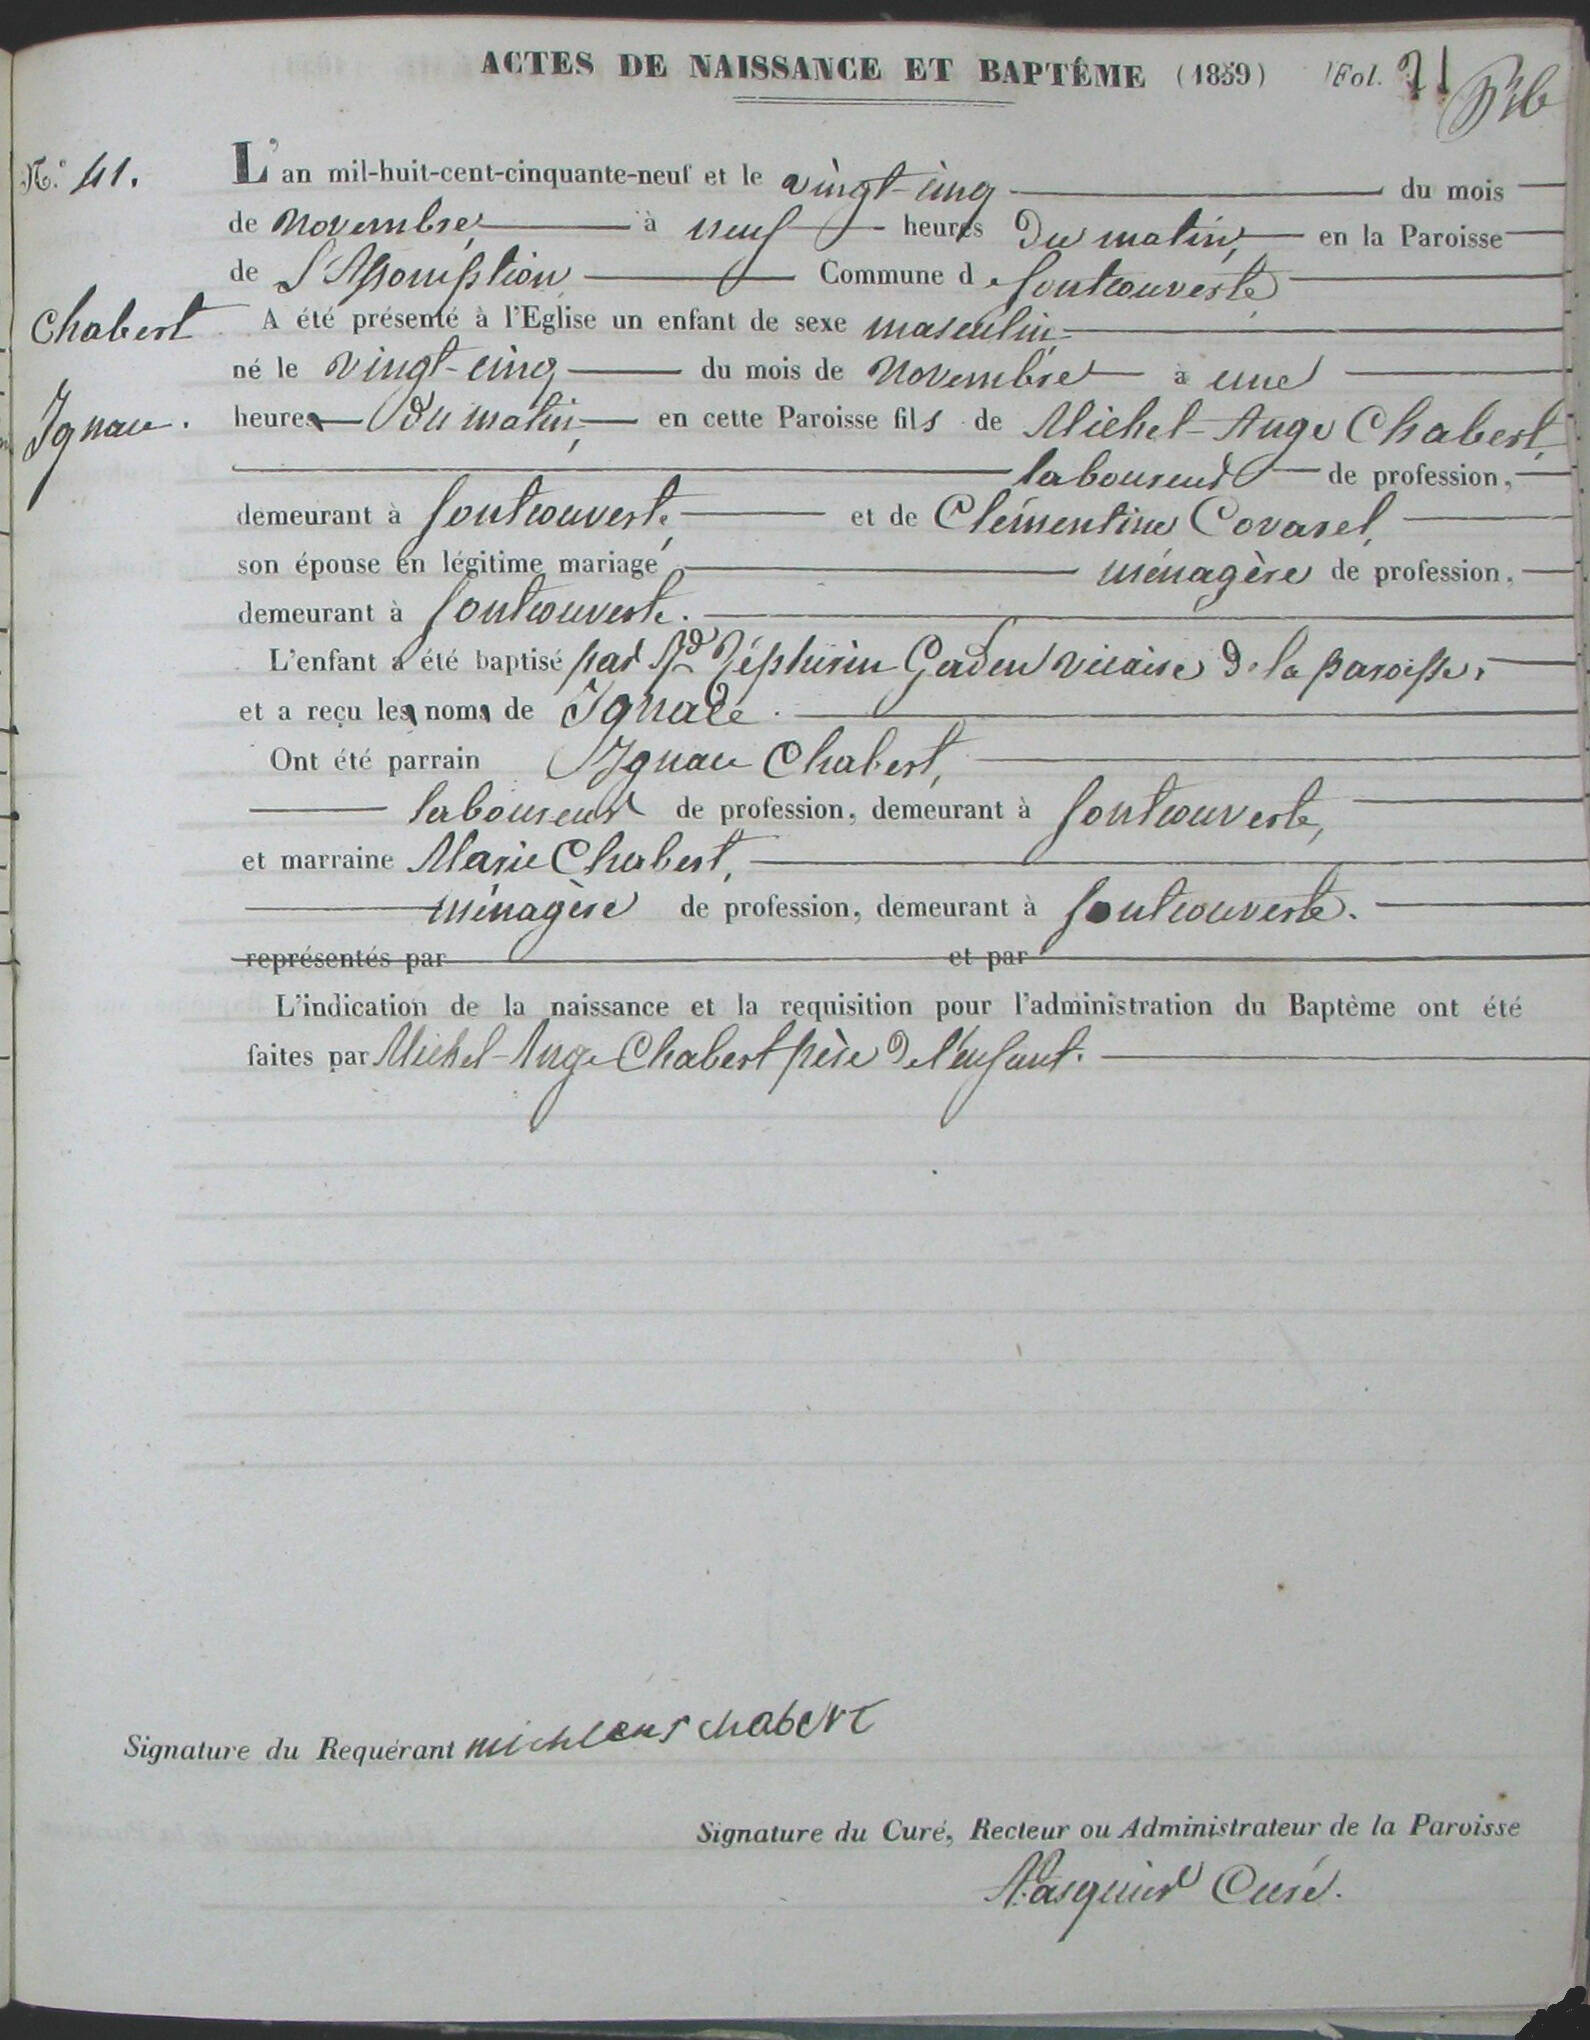 ACTES DE NAISSANCE ET BAPTÊME (1859) Fol. 71
N.° 41. L'an mil-huit-cent-cinquante-neuf et le vingt-cinq du mois
de Novembre, à neuf heures du matin, en la Paroisse
de L'Assomption Commune de Fontcouverte
Chabert A été présenté à l'Eglise un enfant de sexe masculin
né le vingt-cinq du mois de Novembre à une
Ignace. heure du matin, en cette Paroisse fils de Michel-Ange Chabert,
laboureur de profession,
demeurant à Fontcouverte, et de Clémentine Covarel,
son épouse en légitime mariage, ménagère de profession,
demeurant à Fontcouverte.
L'enfant a été baptisé par Rd Zéphirin Gaden vicaire de la paroisse,
et a reçu les noms de Ignace.
Ont été parrain Ignace Chabert,
laboureur de profession, demeurant à Fontcouverte,
et marraine Marie Chabert,
ménagère de profession, demeurant à Fontcouverte.
représentés par et par
L'indication de la naissance et la requisition pour l'administration du Baptème ont été
faites par Michel-Ange Chabert père de l'enfant.
Signature du Requérant chabert
Signature du Curé, Recteur ou Administrateur de la Paroisse
Pasquier Curé.